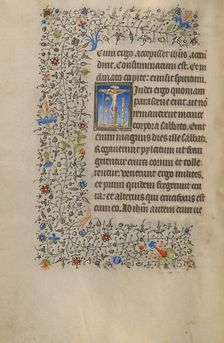 Cum ergo accepisset ihūs. acetū
dixit. Consummatum est. Et in
clinato capite: emisit spiritum.
Iudei ergo quoniam
parasceue erat. ut nō
remanerent in cruce
corpora sabbato. Erat
enim magnus dies ille sabbati.
Rogauerunt pylatum ut fran
gerentur eorum crura et tolle
rentur. Venerunt ergo milites.
et primi quidem fregerunt cru
ra: et alterius qui crucifixus est
cum eo. Ad ihm̄ autem cum ue